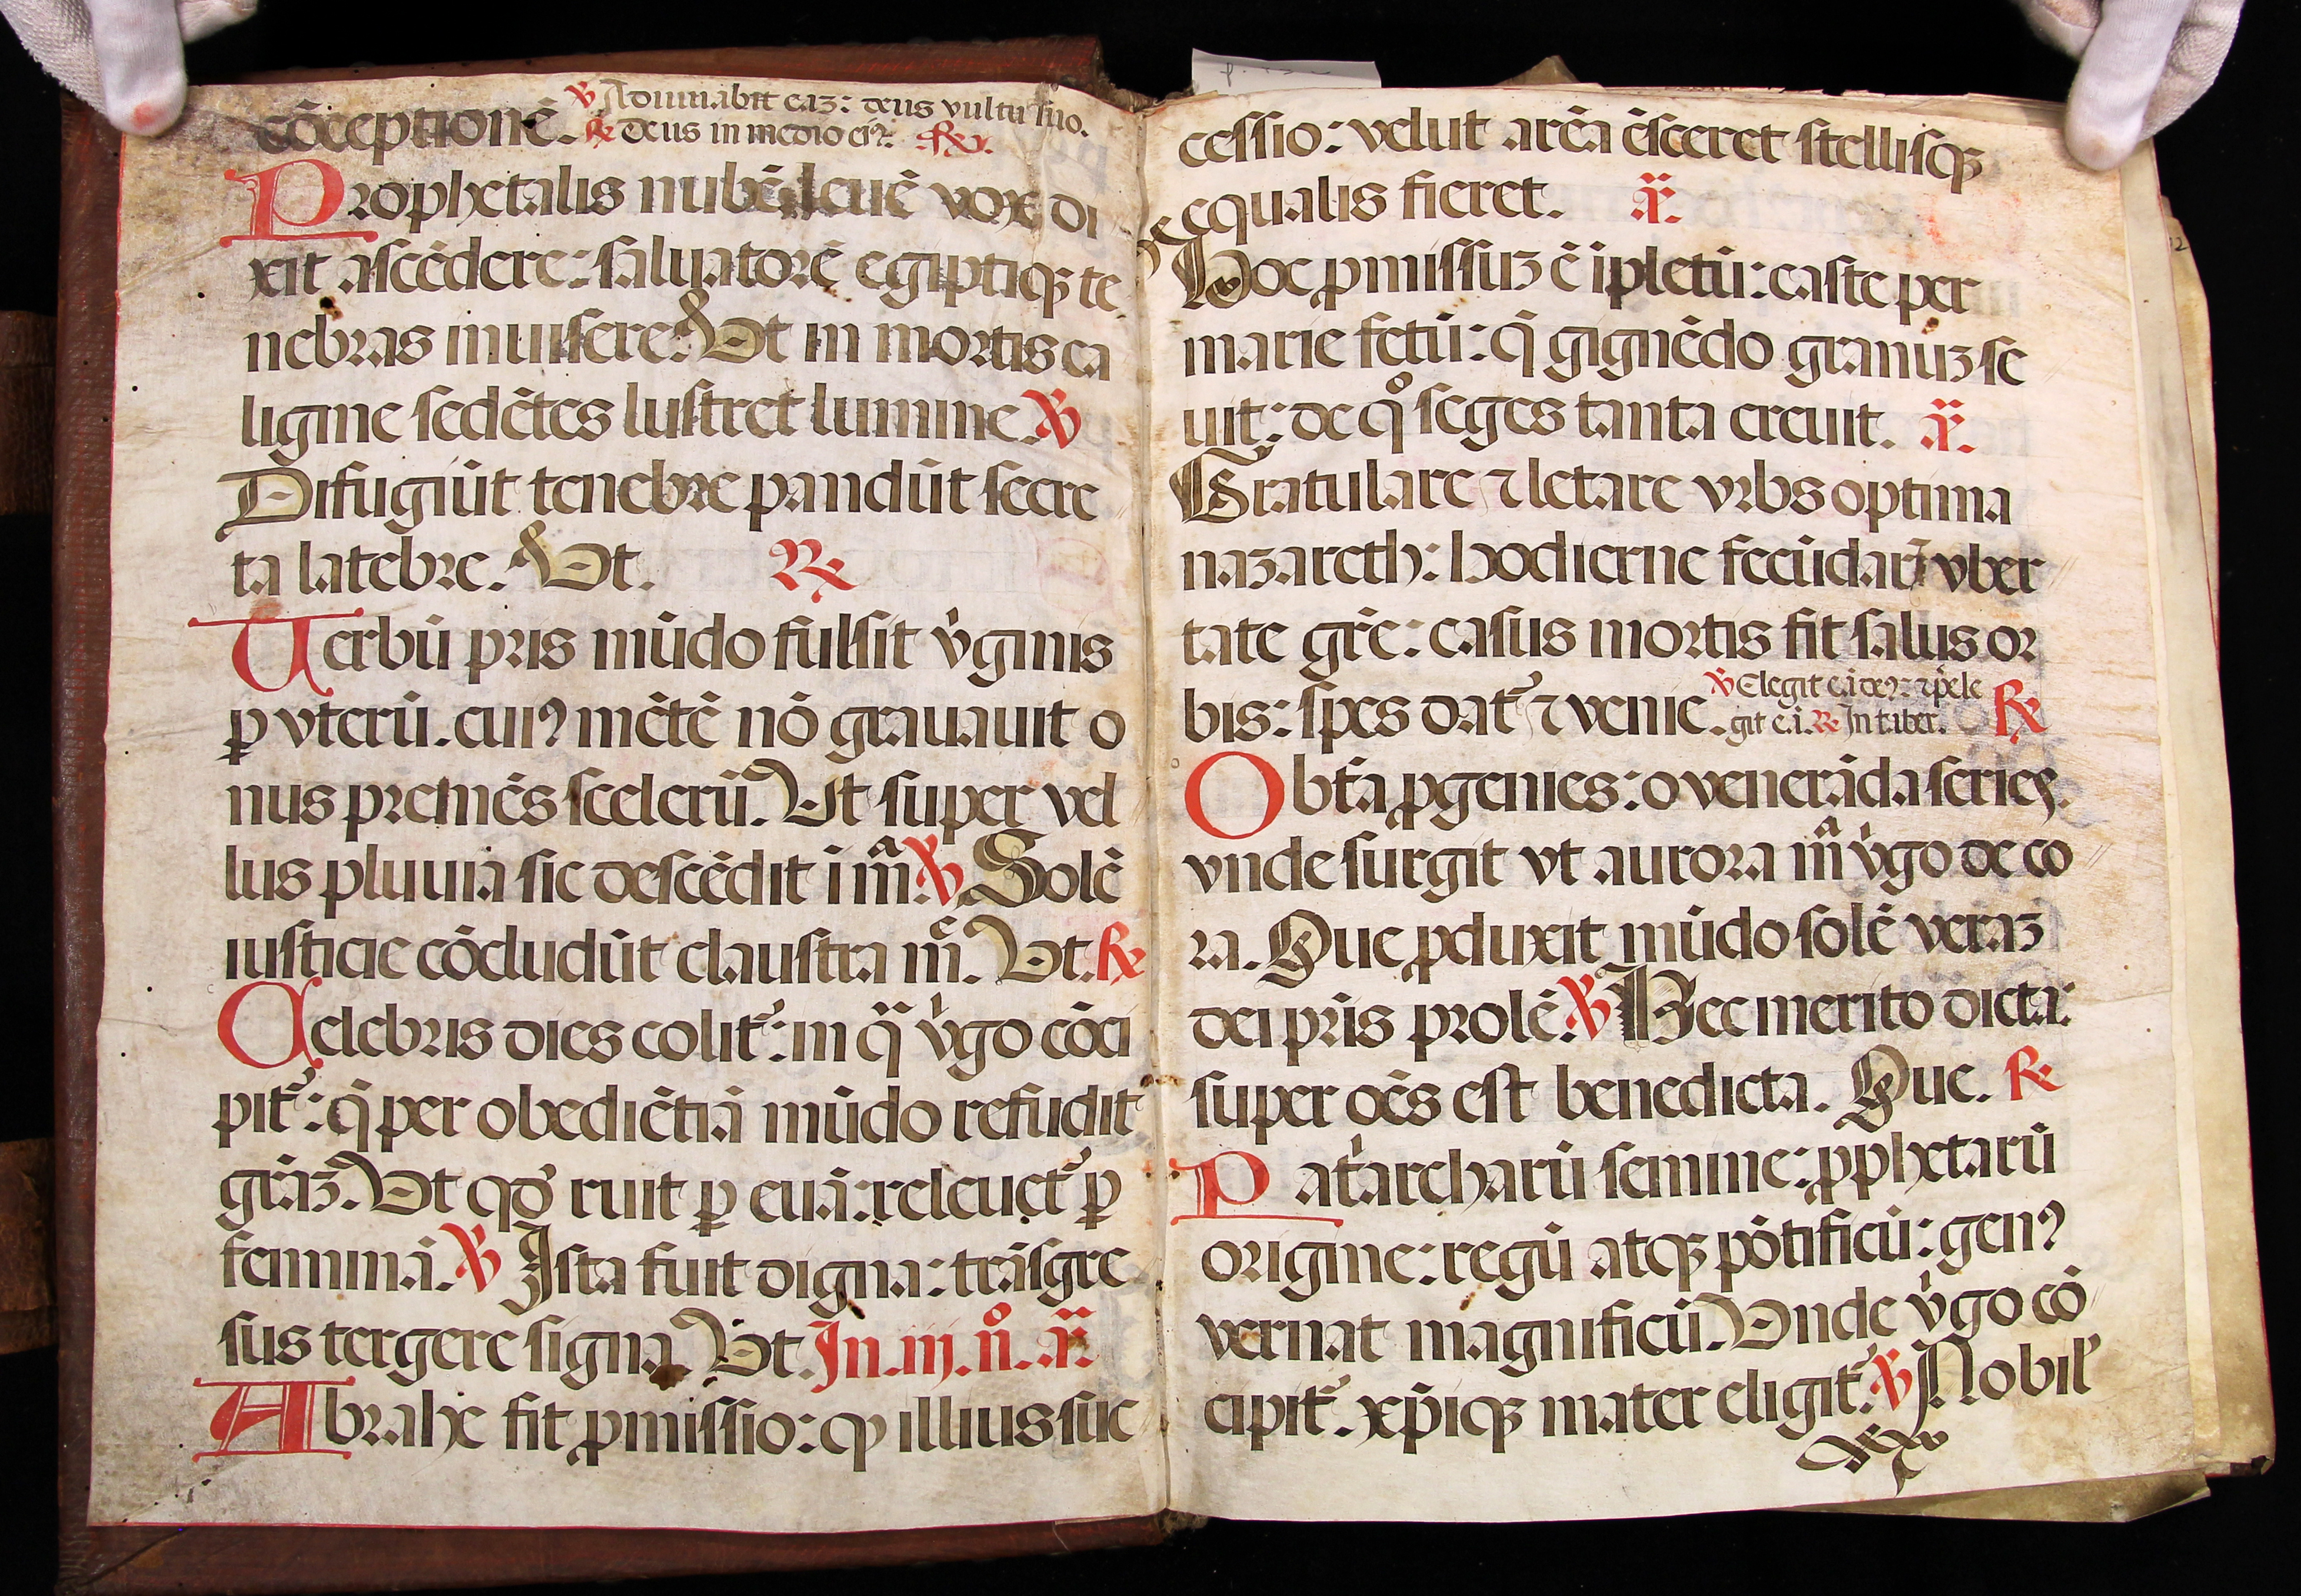 cõceptionẽ. ℣ Adiuuabit eaꝫ: deus vultu suo.
℟ Deus in medio eiꝰ. ℟.
Prophetalis nubẽ leuẽ vox di
xit ascẽdere: saluatorẽ egiptiqꝫ te
nebras inuisere. Ut in mortis ca
ligine sedẽtes lustret lumine. ℣
Difugiũt tenebre pandũt secre
ta latebre. Ut. ℟
Uerbũ pr̃is mũdo fulsit v̓ginis
ꝑ vterũ. cuiꝰ mẽtẽ nõ grauauit o
nus premẽs scelerũ. Ut super vel
lus pluuia sic descẽdit i mᵃ̃. ℣ Solẽ
iusticie cõcludũt claustra mᵉ̃. Ut. ℟
Celebris dies colit᷑: in qᵃ v̓go cõci
pit᷑: q̃ per obediẽtiã mũdo refudit
gr̃aꝫ. Ut qd̓ ruit ꝑ euã: releuet᷑ ꝑ
feminã. ℣ Ista fuit digna: trãsgre
sus tergere signa. Ut. In. iij. n̊. ã.
Abrahe fit ꝓmissio: ꝙ illius suc
cessio: velut arẽa c̃sceret stellisqꝫ
equalis fieret. ã.
Hoc ꝓmissuꝫ ẽ ĩpletũ: caste per
marie fetũ: q̃ gignẽdo granuꝫ se
uit: de qº seges tanta creuit. ã.
Gratulare ⁊ letare vrbs optima
nazareth: hodierne fecũdari vber
tate gr̃e: casus mortis fit salus or
bis: spes dat᷑ ⁊ venie. ℣ Elegit e.i deꝰ: ⁊ p̓ele
git e.i. ℟ In t.aber. ℟
O bt̃a ꝓgenies: o venerãda series.
vnde surgit vt aurora mᵃ̃ v̓go deco
ra. Que ꝓduxit mũdo solẽ veraꝫ
dei pr̃is prolẽ. ℣ Hec merito dicta:
super oẽs est benedicta. Que. ℟
Pat̓archarũ semine: ꝓphetarũ
origine: regũ atqꝫ põtificũ: genꝰ
vernat magnificũ. Unde v̓go cõ
cipit᷑. xp̃iqꝫ mater eligit᷑. ℣ Nobil̓